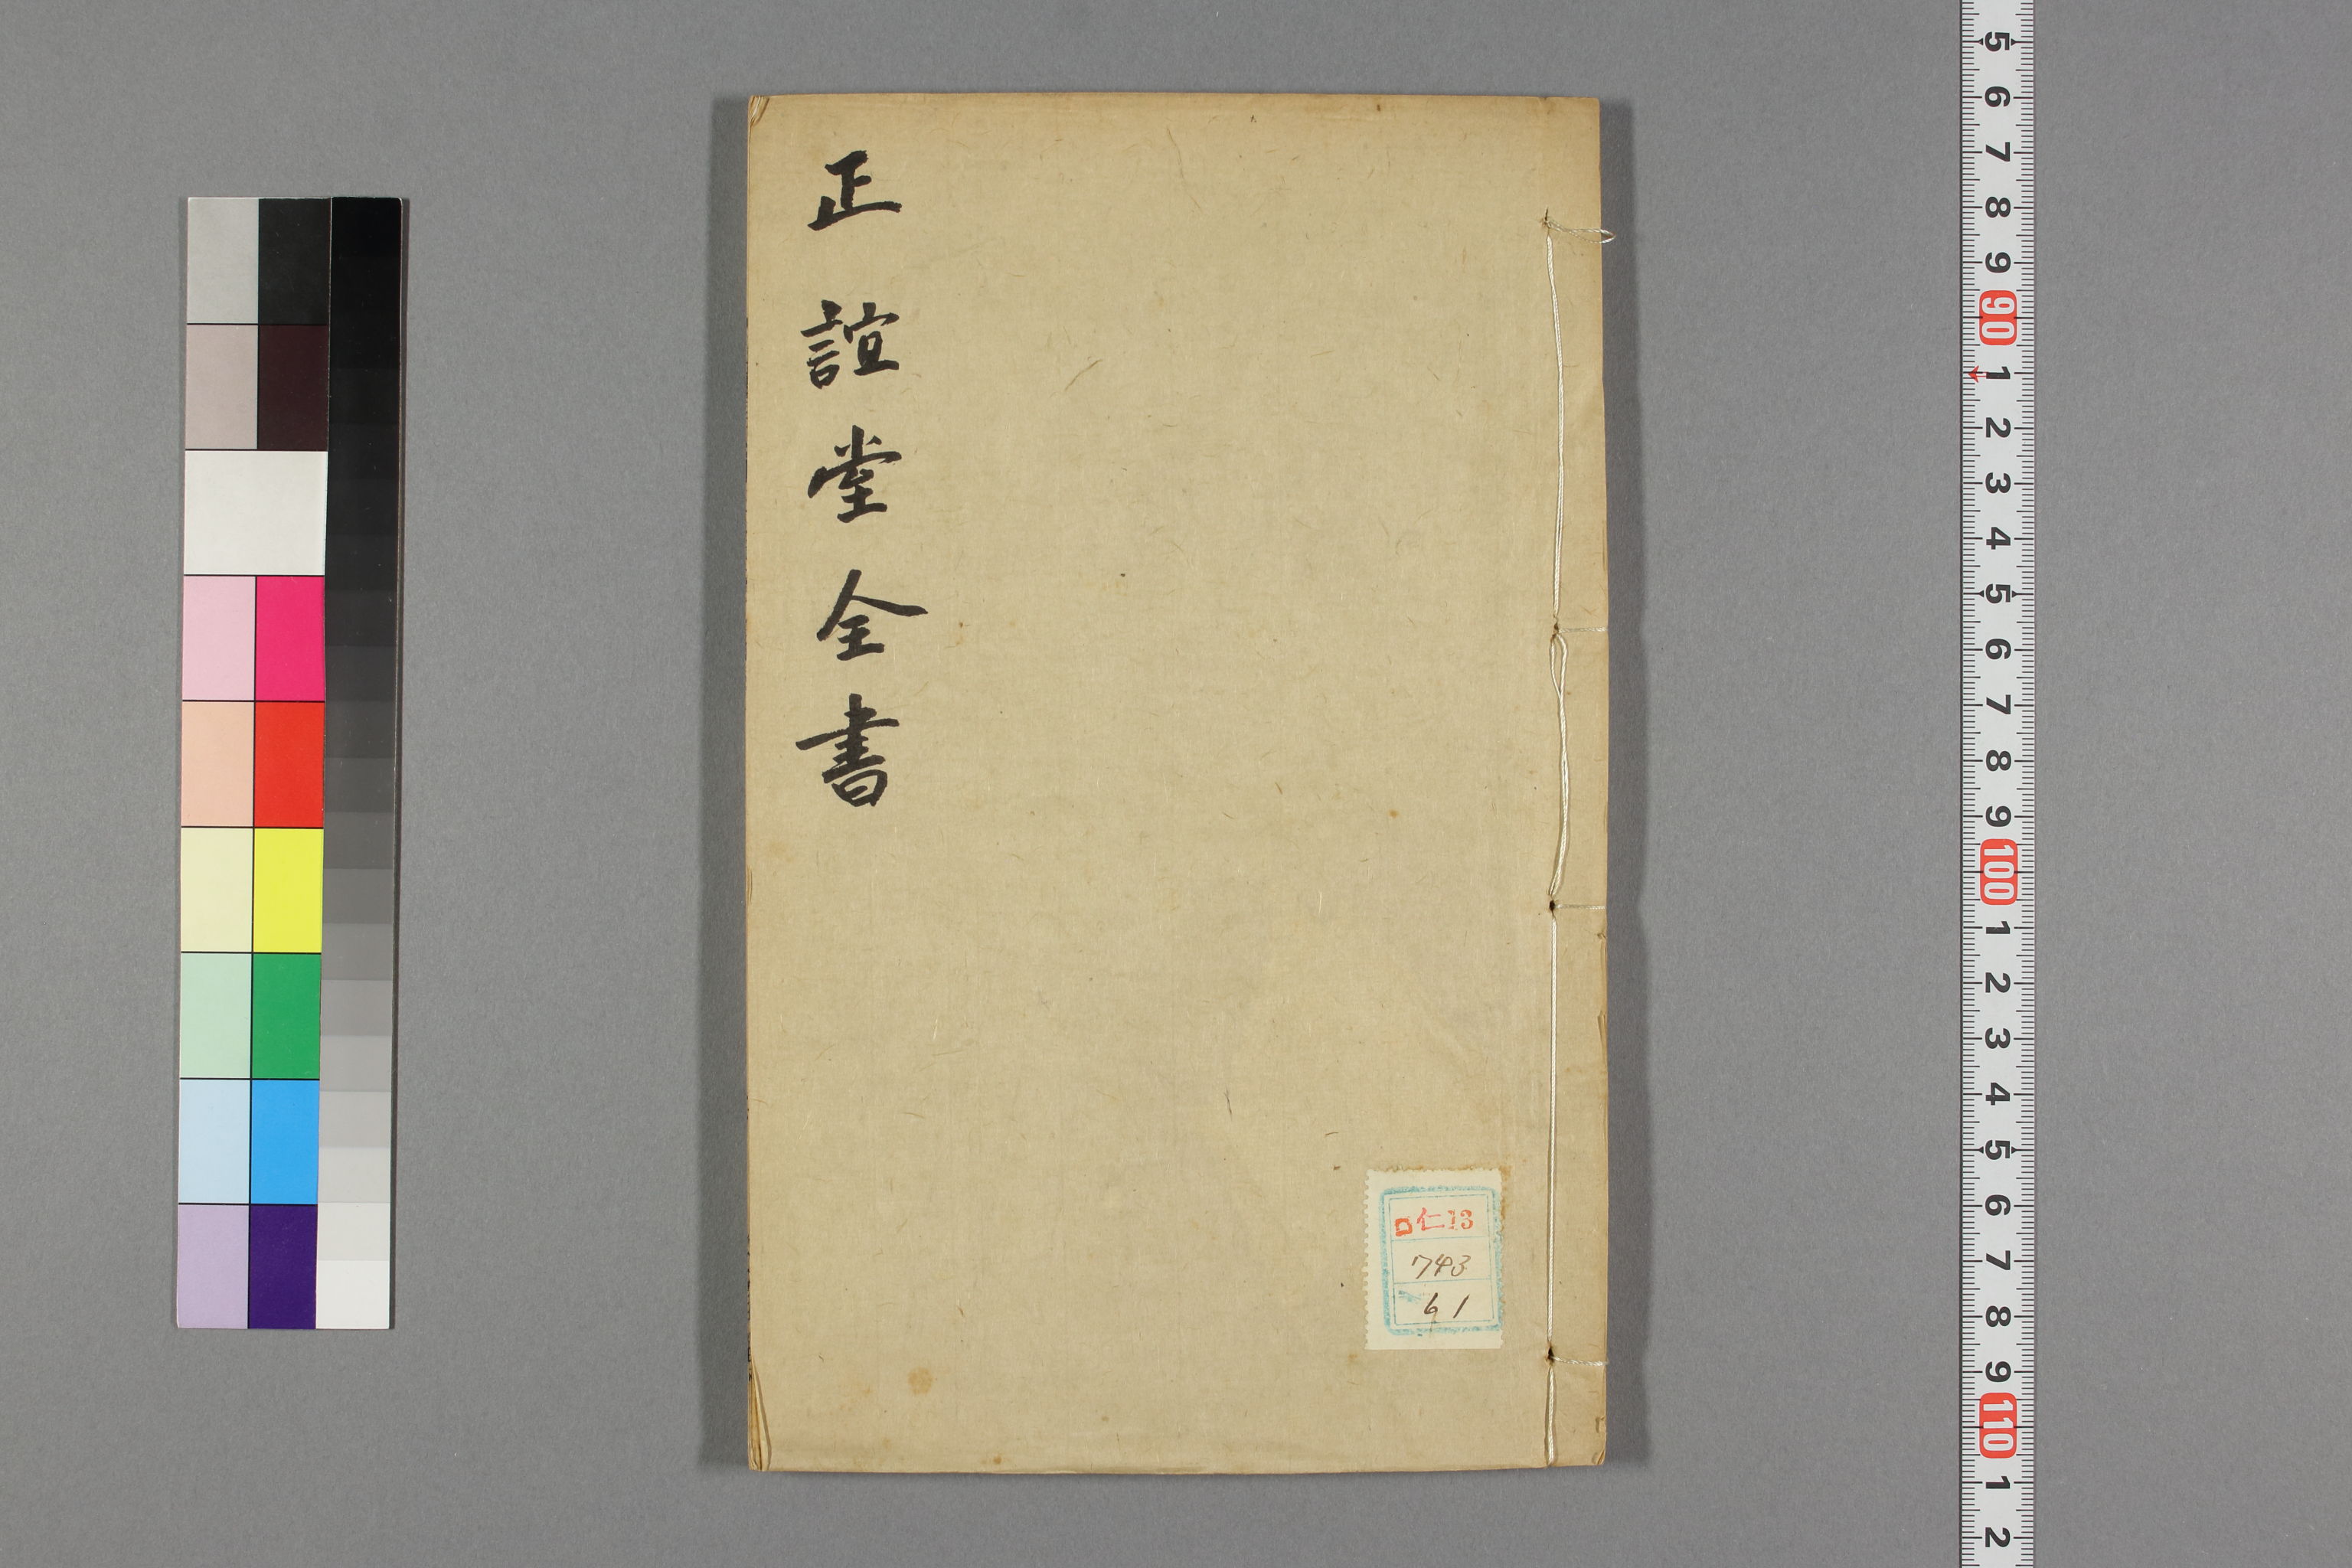 正誼堂全書
ロ仁13
743
61
5
6
7
8
9
90
1
2
3
4
5
6
7
8
9
100
1
2
3
4
5
6
7
8
9
110
1
2